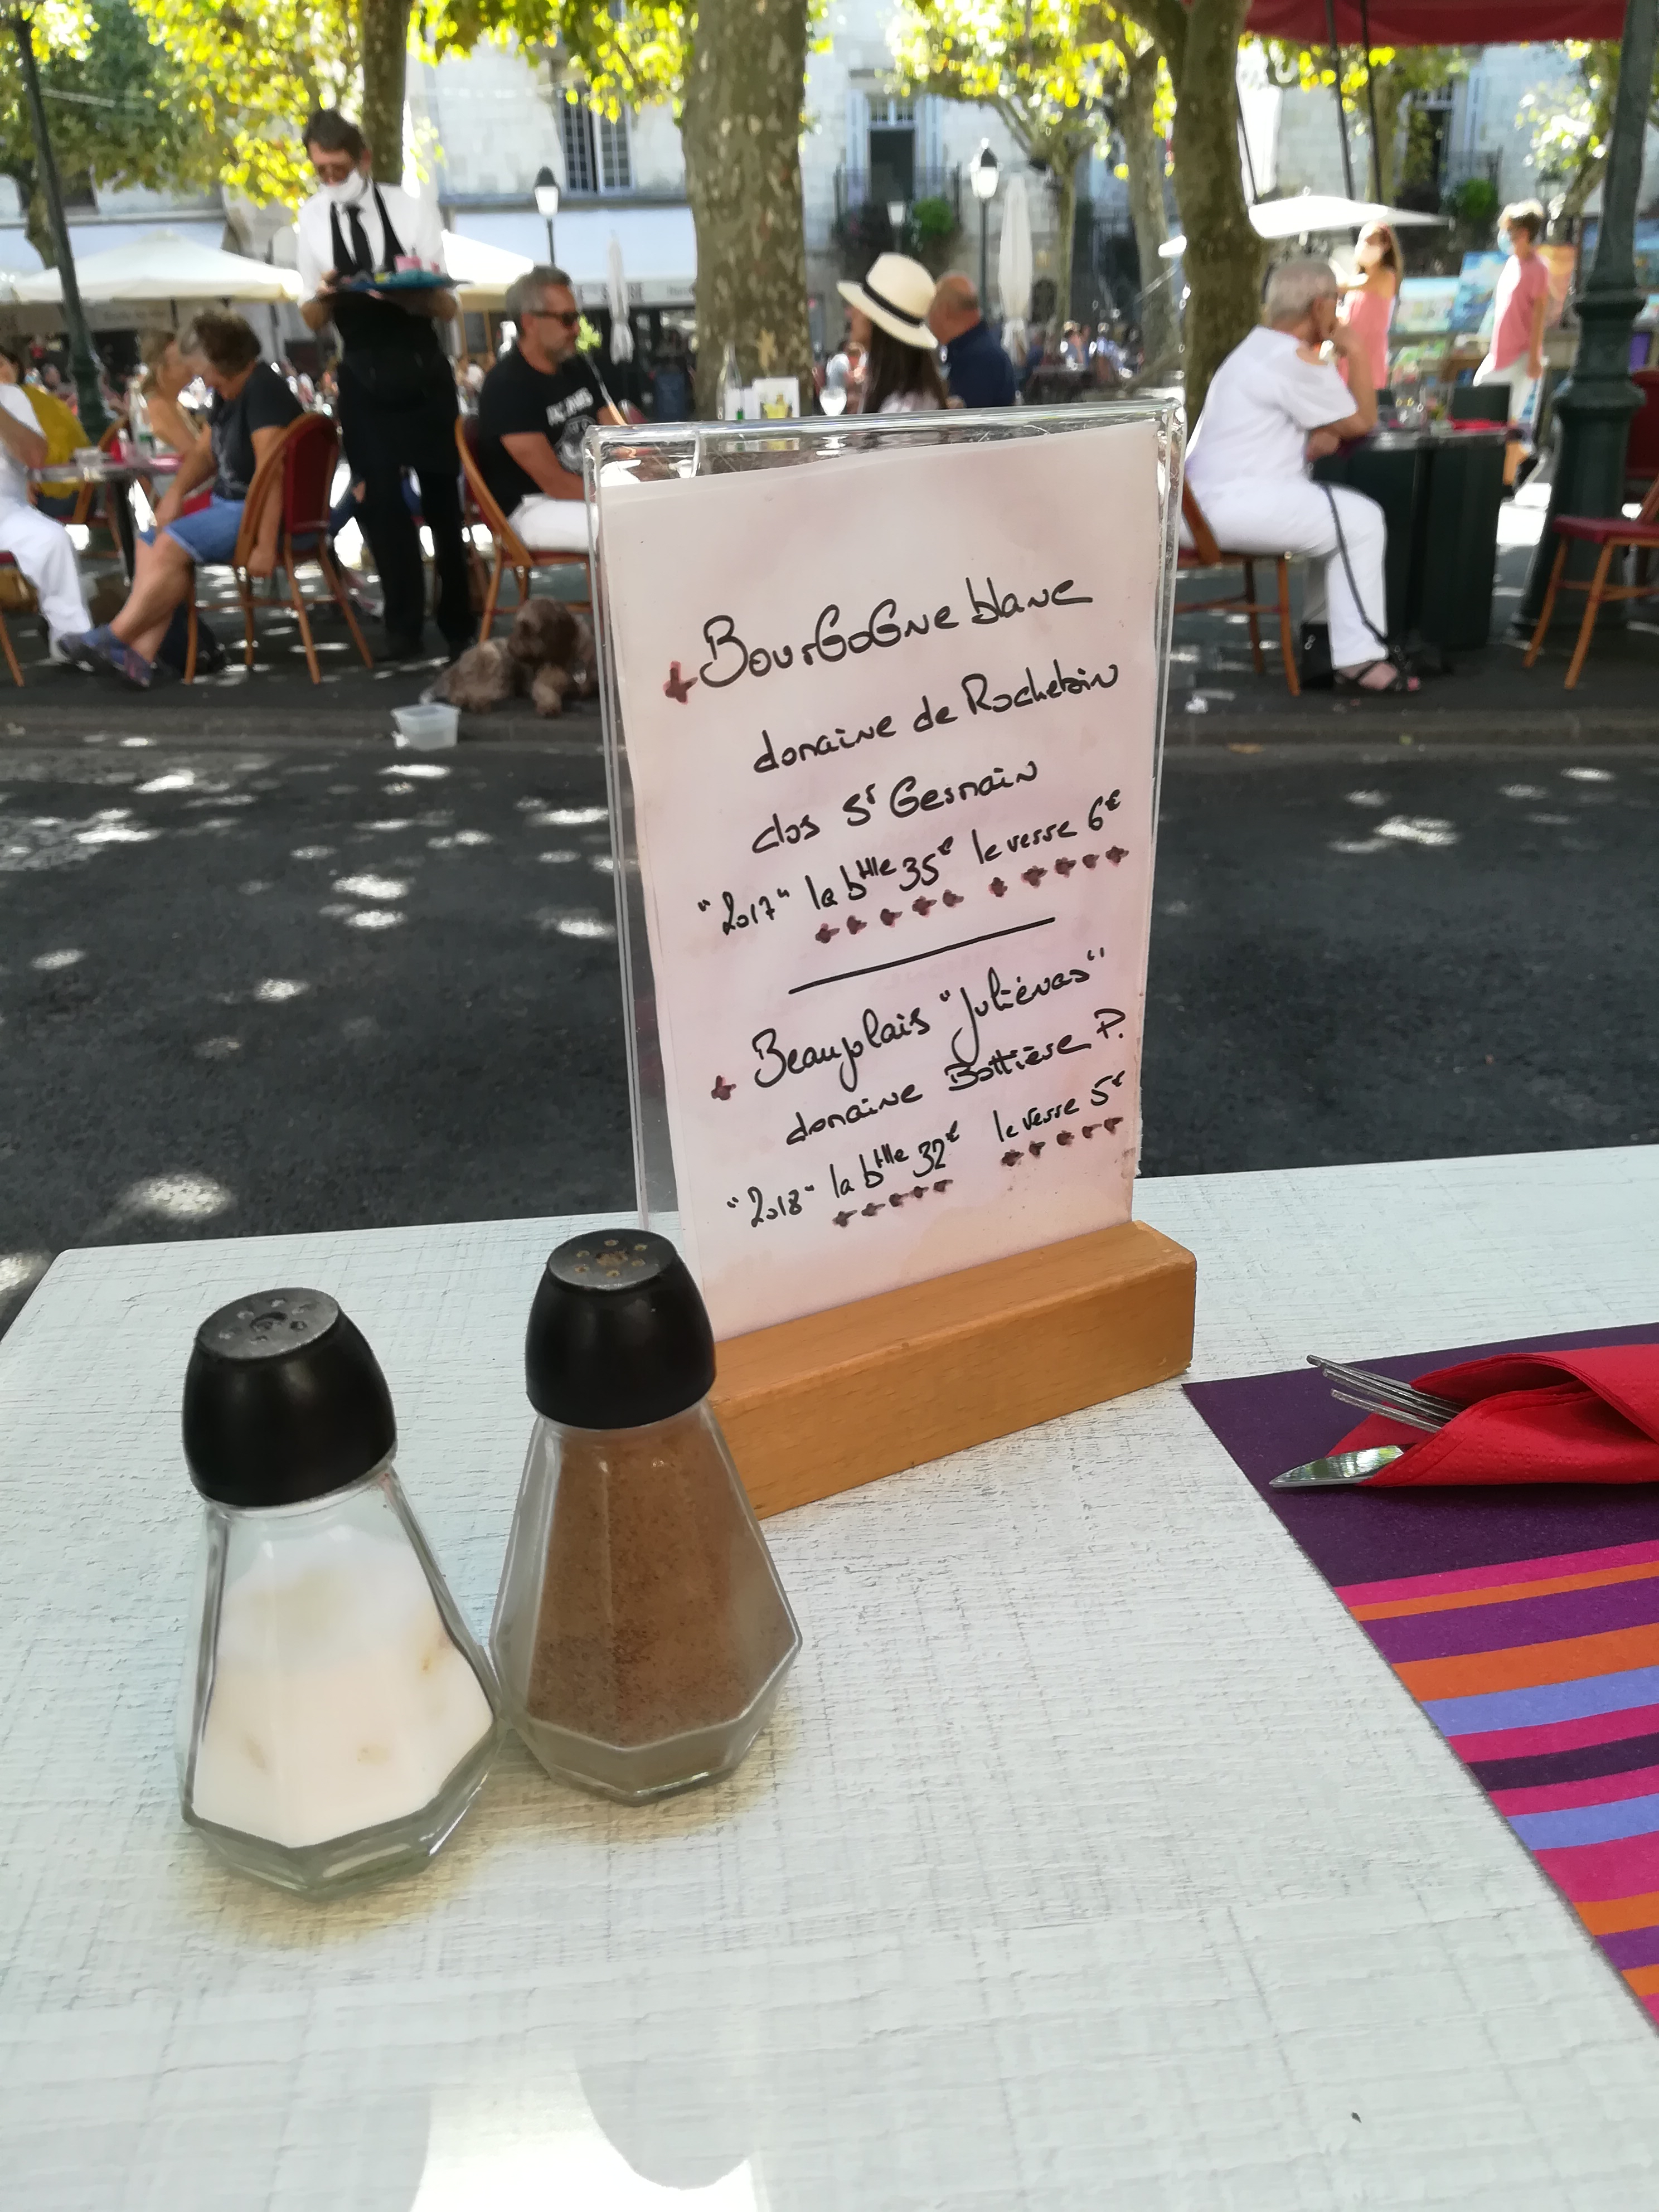 Bourgogne blanc
domaine de Rochebin
clos St Germain
"2017" la btlle 35€ le verre 6€
Beaujolais "Juliénas"
domaine Bottière P.
"2018" la btlle 32€ le verre 5€